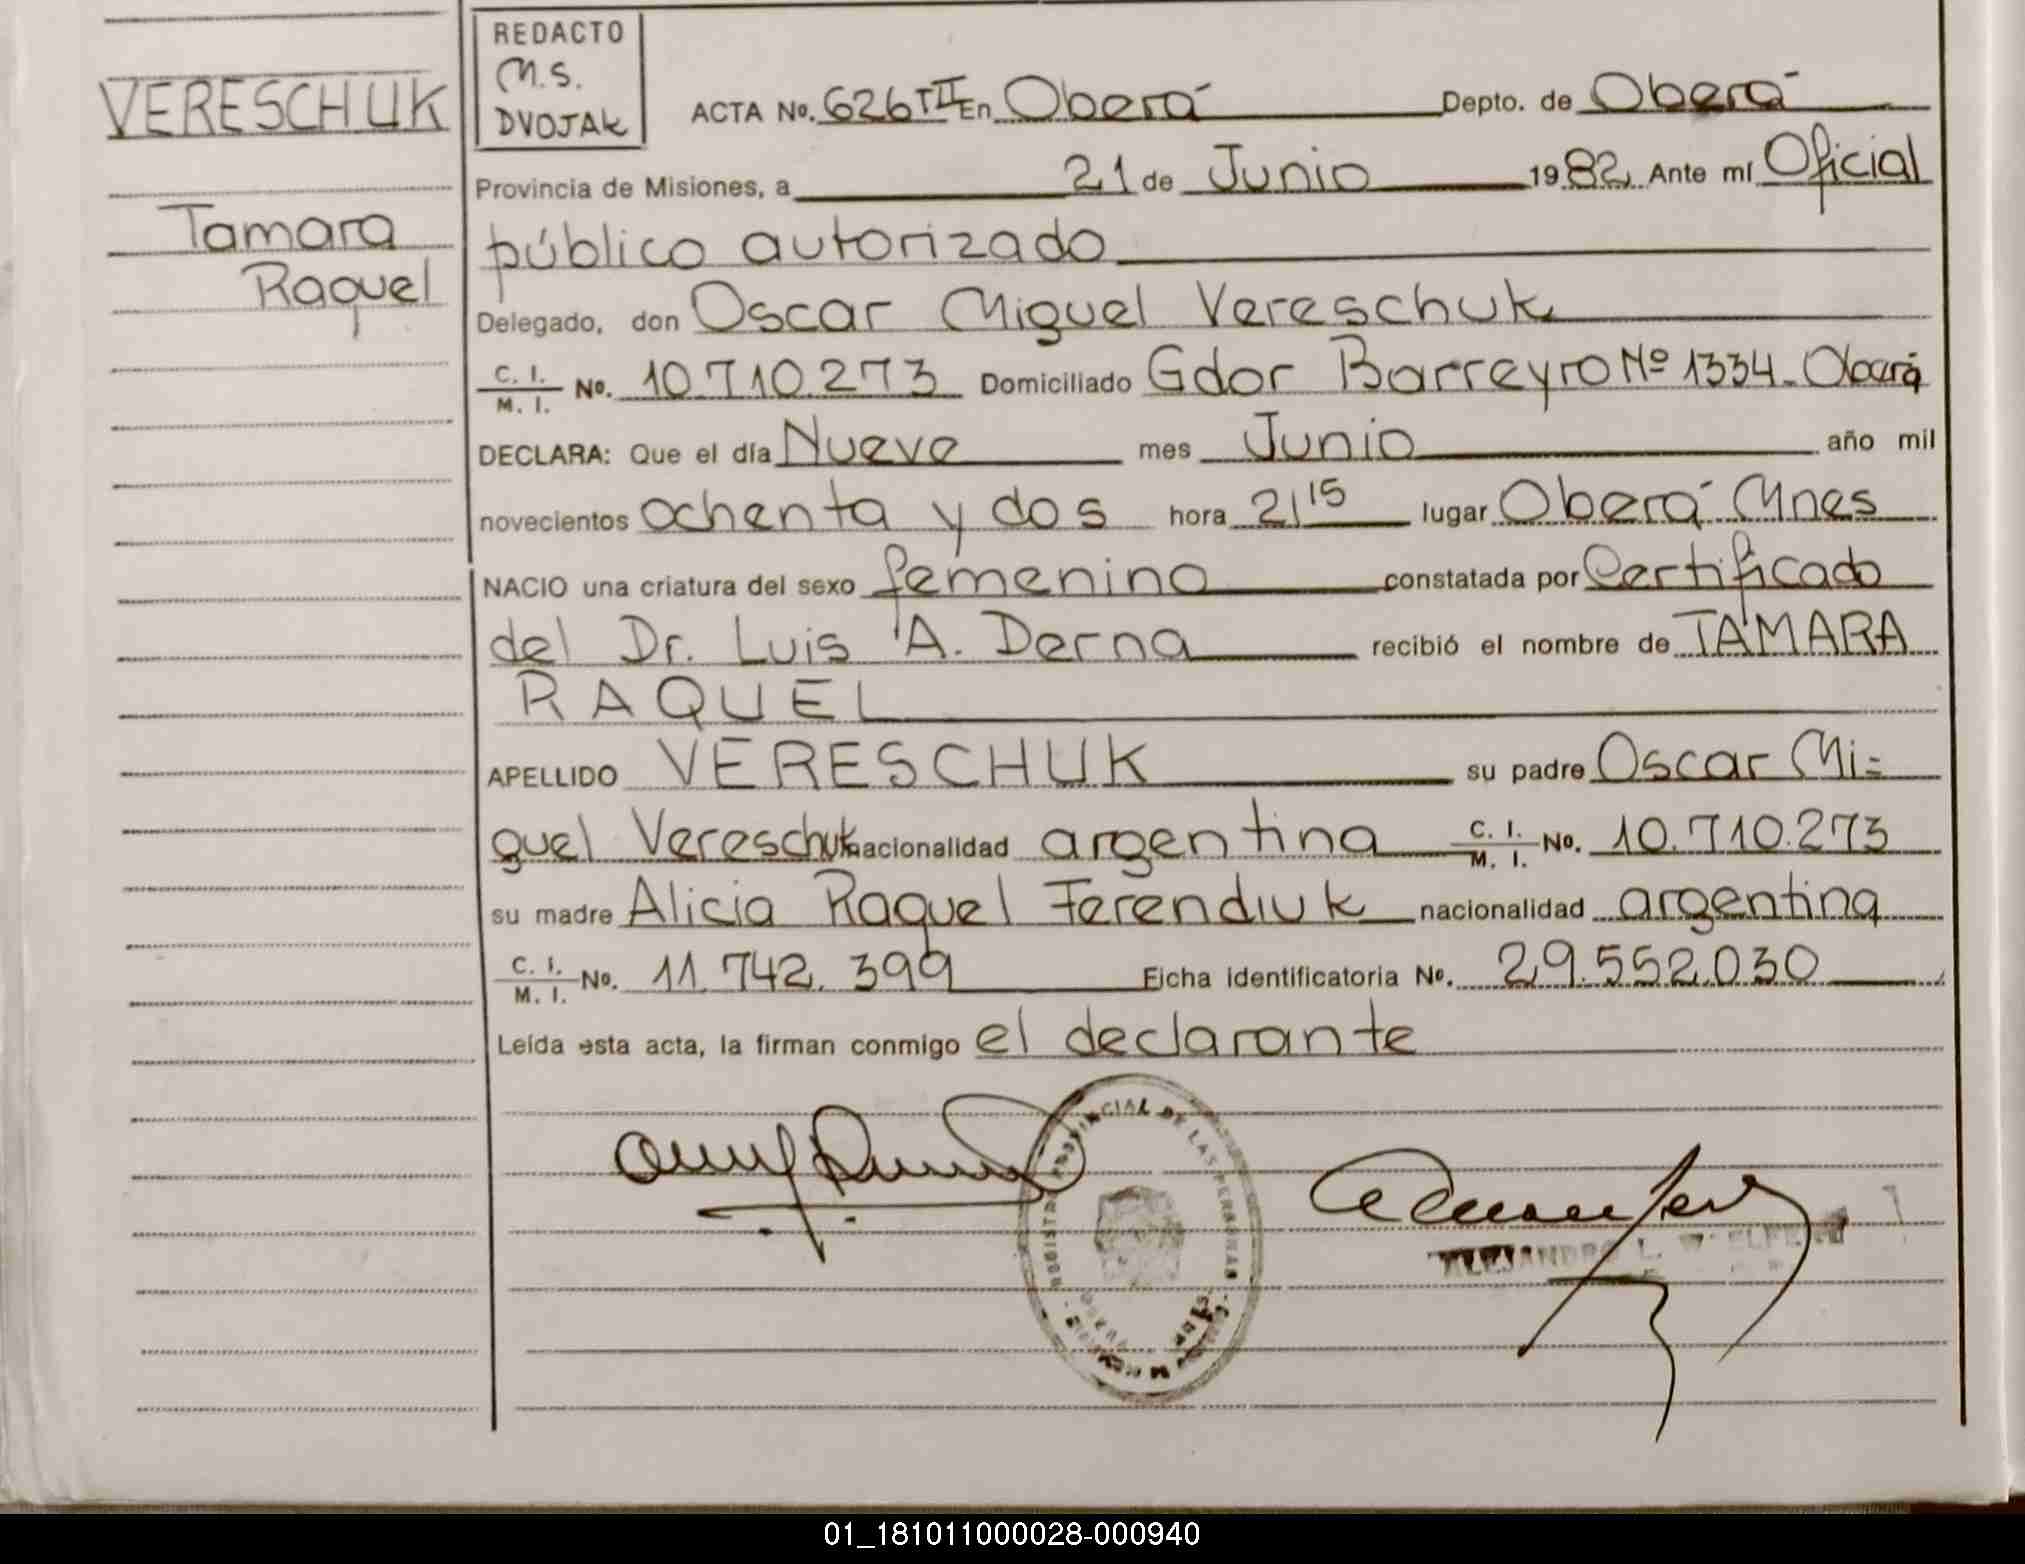 VERESCHUK
Tamara
Raquel
REDACTO
M.S.
DVOJAK
ACTA No. 626 TII En Oberá Depto. de Oberá
Provincia de Misiones, a 21 de Junio 1982 Ante mí Oficial
público autorizado
Delegado, don Oscar Miguel Vereschuk
C. I.
M. I. No. 10.710.273 Domiciliado Gdor Barreyro Nº 1334. Oberá
DECLARA: Que el día Nueve mes Junio año mil
novecientos ochenta y dos hora 21 15 lugar Oberá Mnes
NACIO una criatura del sexo femenino constatada por Certificado
del Dr. Luis A. Derna recibió el nombre de TAMARA
RAQUEL
APELLIDO VERESCHUK su padre Oscar Mi=
guel Vereschuk nacionalidad argentina C. I.
M. I. No. 10.710.273
su madre Alicia Raquel Ferendiuk nacionalidad argentina
C. I.
M. I. No. 11.742.399 Ficha identificatoria No. 29.552.030
Leída esta acta, la firman conmigo el declarante
REGISTRO PROVINCIAL DE LAS PERSONAS
ALEJANDRO L.
01_181011000028-000940